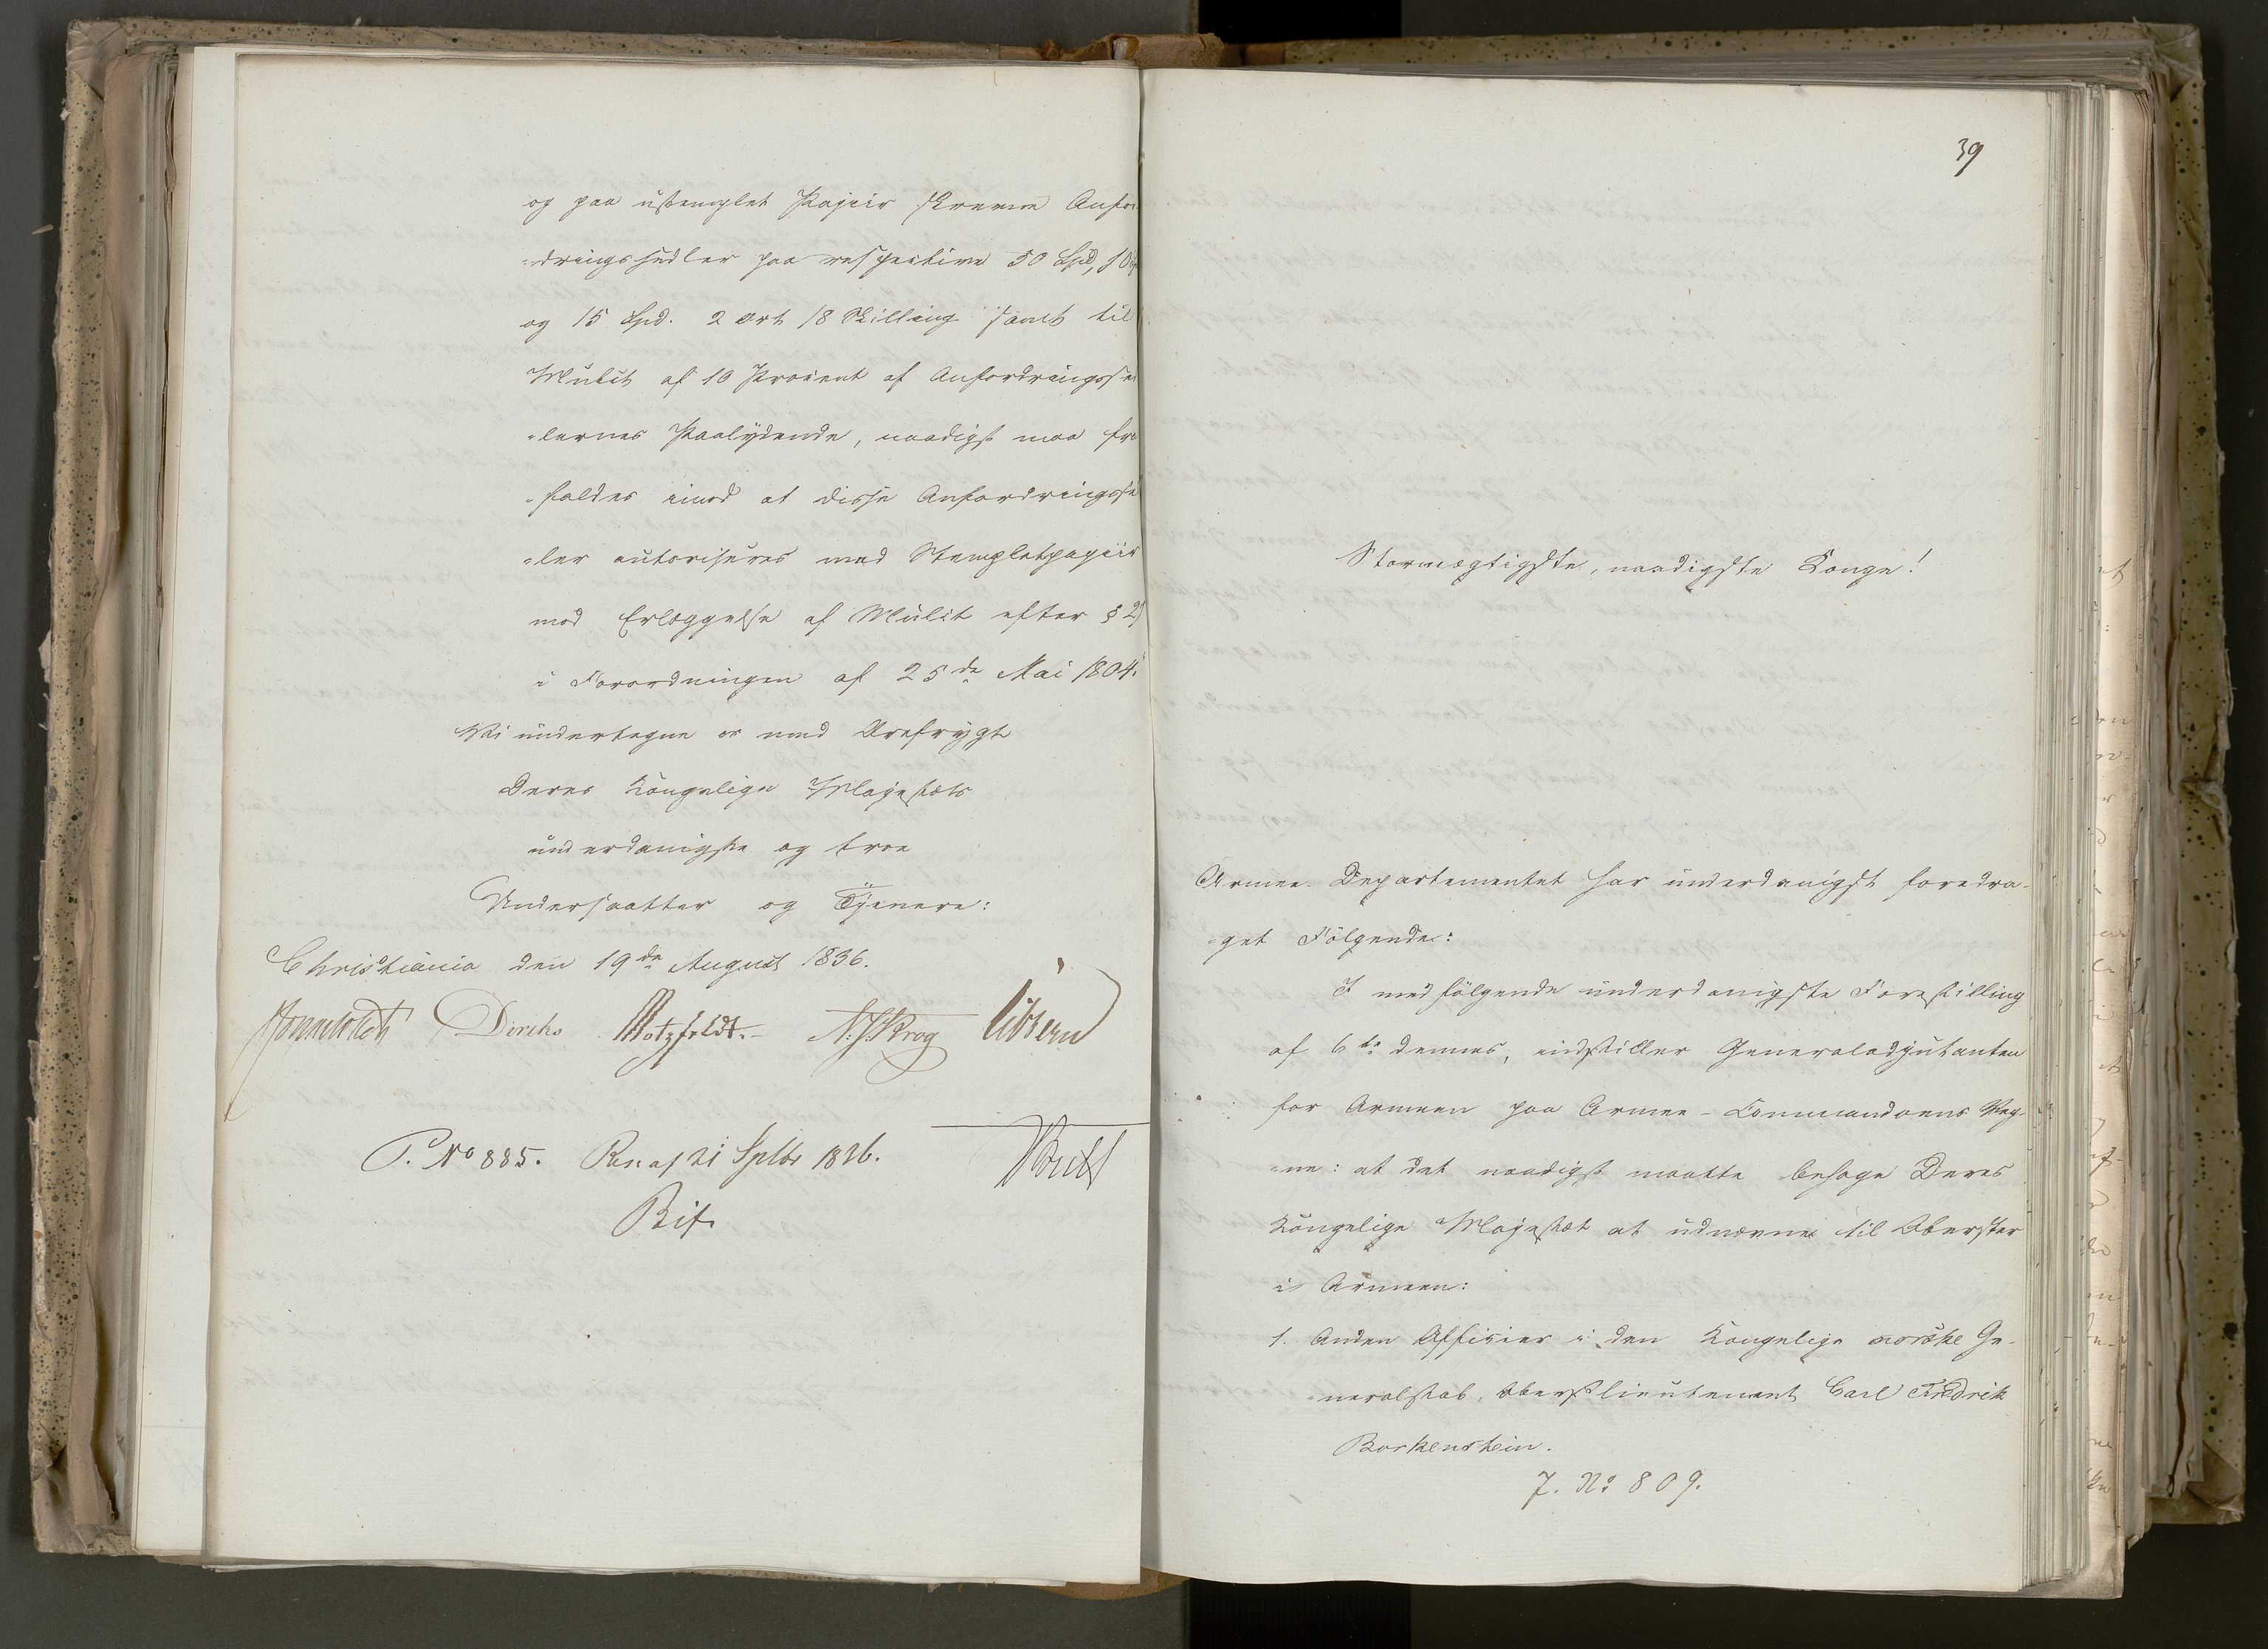 og paa ustemplet Papiir skrevne Anfor
-dringssedler paa respective 50 Spd, 10
og 15 Spd. 2 Ort 18 Skilling samt til
Mulct af 10 Procent af Anfordringsse
-lernes Paalydende, naadigst maa fra
-faldes imod at disse Anfordringsse
-ler autoriseres med Stemplet papiir
mod Erlæggelse af Mulct efter § 2
i Forordningen af 25de Mai 1804.
Vi undertegne os med Ærefrygt
Deres Kongelige Majestæts
underdanigste og troe
Undersaatter og Tjenere:
Christiania den 19de August 1836.
Diriks Motzfeldt. N. J. Krog
P. No 885. Res. af 21 Septbr 1836.
Bif.
39
Stormægtigste, naadigste Konge!
Armee-Departementet har underdanigst foredra-
-get Følgende:
I medfølgende underdanigste Forestilling
af 6te dennes, indstiller Generaladjutanten
for Armeen paa Armee-Commandoens Veg-
-ne: at det naadigst maatte behage Deres
Kongelige Majestæt at udnævne til Oberster
i Armeen:
1. Anden Officier i den Kongelige norske Ge-
-neralstab, Oberstlieutenant Carl Fredrik
Borkenstein.
J. No 809.